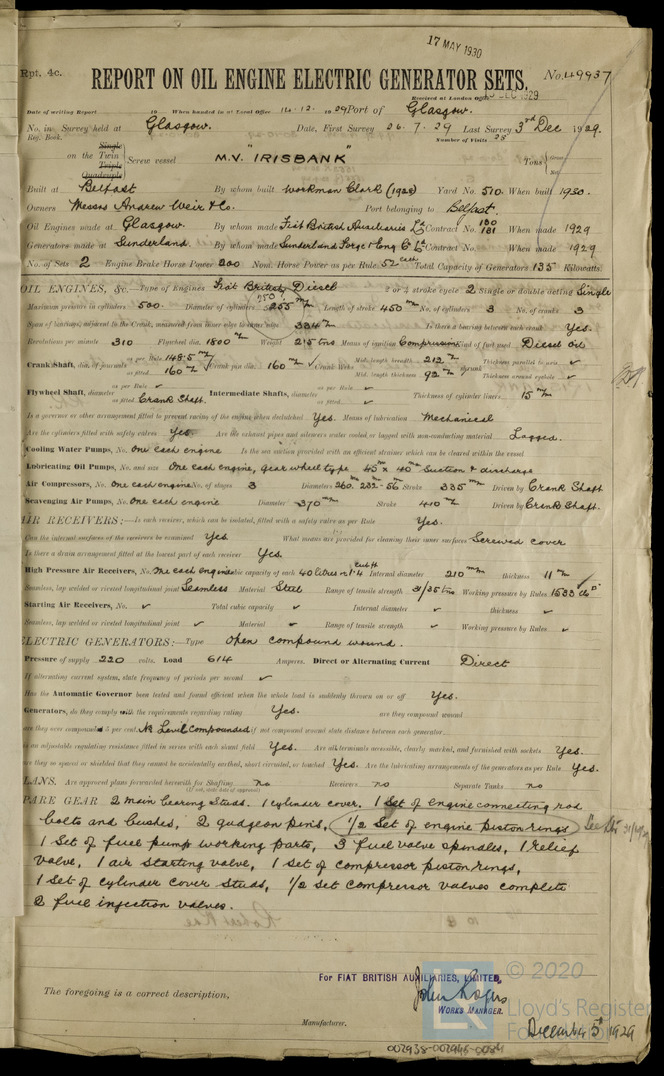 17 MAY 1930
Rpt. 4c.
REPORT ON OIL ENGINE ELECTRIC GENERATOR SETS.
No. 49937
Received at London Office DEC 1929
Date of writing Report 19 When handed in at Local Office 14.12. 1929 Port of Glasgow.
No. in Survey held at Glasgow. Date, First Survey 26.7.29 Last Survey 3rd Dec 1929.
Reg. Book. Number of Visits 25
Single
on the Twin Screw vessel M.V. "IRISBANK" Tons Gross
Triple
Quadruple
Built at Belfast By whom built Workman Clark (1928) Yard No. 510. When built 1930.
Owners Messrs Andrew Weir & Co. Port belonging to Belfast.
Oil Engines made at Glasgow. By whom made Fiat British Auxiliaries Ld Contract No. 180 181 When made 1929
Generators made at Sunderland. By whom made Sunderland Forge & Eng Co Ld Contract No. When made 1929
No. of Sets 2 Engine Brake Horse Power 200 Nom. Horse Power as per Rule 52 each Total Capacity of Generators 135 Kilowatts.
OIL ENGINES, &c.—Type of Engines Fiat British Diesel 2 or 4 stroke cycle 2 Single or double acting Single
Maximum pressure in cylinders 500. Diameter of cylinders 255 m/m Length of stroke 450 m/m No. of cylinders 3 No. of cranks 3
Span of bearings, adjacent to the Crank, measured from inner edge to inner edge 334 m/m Is there a bearing between each crank Yes.
Revolutions per minute 310 Flywheel dia. 1500 m/m Weight 2.15 tns Means of ignition Compression Kind of fuel used Diesel oil
Crank Shaft, dia. of journals as per Rule 148.5 m/m as fitted 160 m/m Crank pin dia. 160 m/m Crank Webs Mid. length breadth 212 m/m Thickness parallel to axis
Mid. length thickness 92 m/m shrunk Thickness around eyehole
Flywheel Shaft, diameter as per Rule as fitted Crank Shaft. Intermediate Shafts, diameter as per Rule as fitted Thickness of cylinder liners 15 m/m
Is a governor or other arrangement fitted to prevent racing of the engine when declutched Yes. Means of lubrication Mechanical
Are the cylinders fitted with safety valves Yes. Are the exhaust pipes and silencers water cooled or lagged with non-conducting material Lagged.
Cooling Water Pumps, No. One each engine Is the sea suction provided with an efficient strainer which can be cleared within the vessel
Lubricating Oil Pumps, No. and size One each engine, gear wheel type 45 m/m x 40 m/m Suction & discharge
Air Compressors, No. One each engine No. of stages 3 Diameters 260 m/m 232-56 m/m Stroke 335 m/m Driven by Crank Shaft
Scavenging Air Pumps, No. One each engine Diameter 370 m/m Stroke 410 m/m Driven by Crank Shaft.
AIR RECEIVERS:—Is each receiver, which can be isolated, fitted with a safety valve as per Rule Yes.
Can the internal surfaces of the receivers be examined Yes. What means are provided for cleaning their inner surfaces Screwed cover
Is there a drain arrangement fitted at the lowest part of each receiver Yes.
High Pressure Air Receivers, No. One each engine Cubic capacity of each 40 litres = 1.4 cub ft Internal diameter 210 m/m thickness 11 m/m
Seamless, lap welded or riveted longitudinal joint Seamless Material Steel Range of tensile strength 31/35 tns Working pressure by Rules 1533
Starting Air Receivers, No. Total cubic capacity Internal diameter thickness
Seamless, lap welded or riveted longitudinal joint Material Range of tensile strength Working pressure by Rules
ELECTRIC GENERATORS:—Type Open compound wound.
Pressure of supply 220 volts. Load 614 Amperes. Direct or Alternating Current Direct
If alternating current system, state frequency of periods per second
Has the Automatic Governor been tested and found efficient when the whole load is suddenly thrown on or off Yes.
Generators, do they comply with the requirements regarding rating Yes. are they compound wound
are they over compounded 5 per cent. No Level Compounded if not compound wound state distance between each generator
is an adjustable regulating resistance fitted in series with each shunt field Yes. Are all terminals accessible, clearly marked, and furnished with sockets Yes.
are they so spaced or shielded that they cannot be accidentally earthed, short circuited, or touched Yes. Are the lubricating arrangements of the generators as per Rule Yes.
PLANS. Are approved plans forwarded herewith for Shafting no Receivers no Separate Tanks no
(If not, state date of approval)
SPARE GEAR 2 Main bearing studs. 1 cylinder cover. 1 Set of engine connecting rod
bolts and bushes, 2 gudgeon pins, 1/2 Set of engine piston rings
1 Set of fuel pump working parts, 3 fuel valve spindles, 1 relief
valve, 1 air starting valve, 1 set of compressor piston rings,
1 Set of cylinder cover studs, 1/2 set compressor valves complete
2 fuel injection valves.
The foregoing is a correct description,
For FIAT BRITISH AUXILIARIES, LIMITED,
John Rogers
WORKS MANAGER.
Manufacturer.
December 5th 1929
© 2020
Lloyd's Register
002938-002946-0084